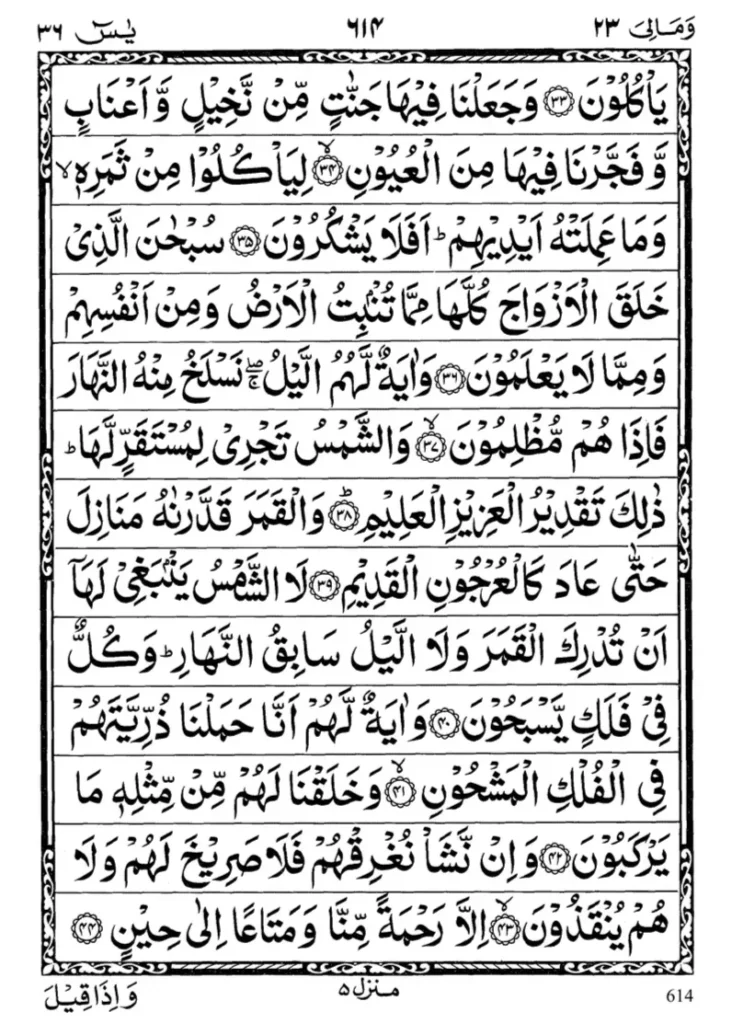 وَمَالِیَ ٢٣ ٦١٤ يٰسٓ ٣٦
يَاْكُلُوْنَ ﴿٣٣﴾ وَجَعَلْنَا فِيْهَا جَنّٰتٍ مِّنْ نَّخِيْلٍ وَّ اَعْنَابٍ
وَّ فَجَّرْنَا فِيْهَا مِنَ الْعُيُوْنِ ﴿٣٤﴾ۙ لِيَاْكُلُوْا مِنْ ثَمَرِهٖ ۙ
وَمَا عَمِلَتْهُ اَيْدِيْهِمْ ؕ اَفَلَا يَشْكُرُوْنَ ﴿٣٥﴾ سُبْحٰنَ الَّذِیْ
خَلَقَ الْاَزْوَاجَ كُلَّهَا مِمَّا تُنْۢبِتُ الْاَرْضُ وَمِنْ اَنْفُسِهِمْ
وَمِمَّا لَا يَعْلَمُوْنَ ﴿٣٦﴾ وَاٰيَةٌ لَّهُمُ الَّيْلُ ۖۚ نَسْلَخُ مِنْهُ النَّهَارَ
فَاِذَا هُمْ مُّظْلِمُوْنَ ﴿٣٧﴾ۙ وَالشَّمْسُ تَجْرِیْ لِمُسْتَقَرٍّ لَّهَا ؕ
ذٰلِكَ تَقْدِيْرُ الْعَزِيْزِ الْعَلِيْمِ ﴿٣٨﴾ؕ وَالْقَمَرَ قَدَّرْنٰهُ مَنَازِلَ
حَتّٰی عَادَ كَالْعُرْجُوْنِ الْقَدِيْمِ ﴿٣٩﴾ لَا الشَّمْسُ يَنْۢبَغِیْ لَهَاۤ
اَنْ تُدْرِكَ الْقَمَرَ وَلَا الَّيْلُ سَابِقُ النَّهَارِ ؕ وَكُلٌّ
فِیْ فَلَكٍ يَّسْبَحُوْنَ ﴿٤٠﴾ وَاٰيَةٌ لَّهُمْ اَنَّا حَمَلْنَا ذُرِّيَّتَهُمْ
فِی الْفُلْكِ الْمَشْحُوْنِ ﴿٤١﴾ۙ وَخَلَقْنَا لَهُمْ مِّنْ مِّثْلِهٖ مَا
يَرْكَبُوْنَ ﴿٤٢﴾ وَاِنْ نَّشَاْ نُغْرِقْهُمْ فَلَا صَرِيْخَ لَهُمْ وَلَا
هُمْ يُنْقَذُوْنَ ﴿٤٣﴾ۙ اِلَّا رَحْمَةً مِّنَّا وَمَتَاعًا اِلٰی حِيْنٍ ﴿٤٤﴾
وَاِذَا قِيْلَ منزل ٥ 614